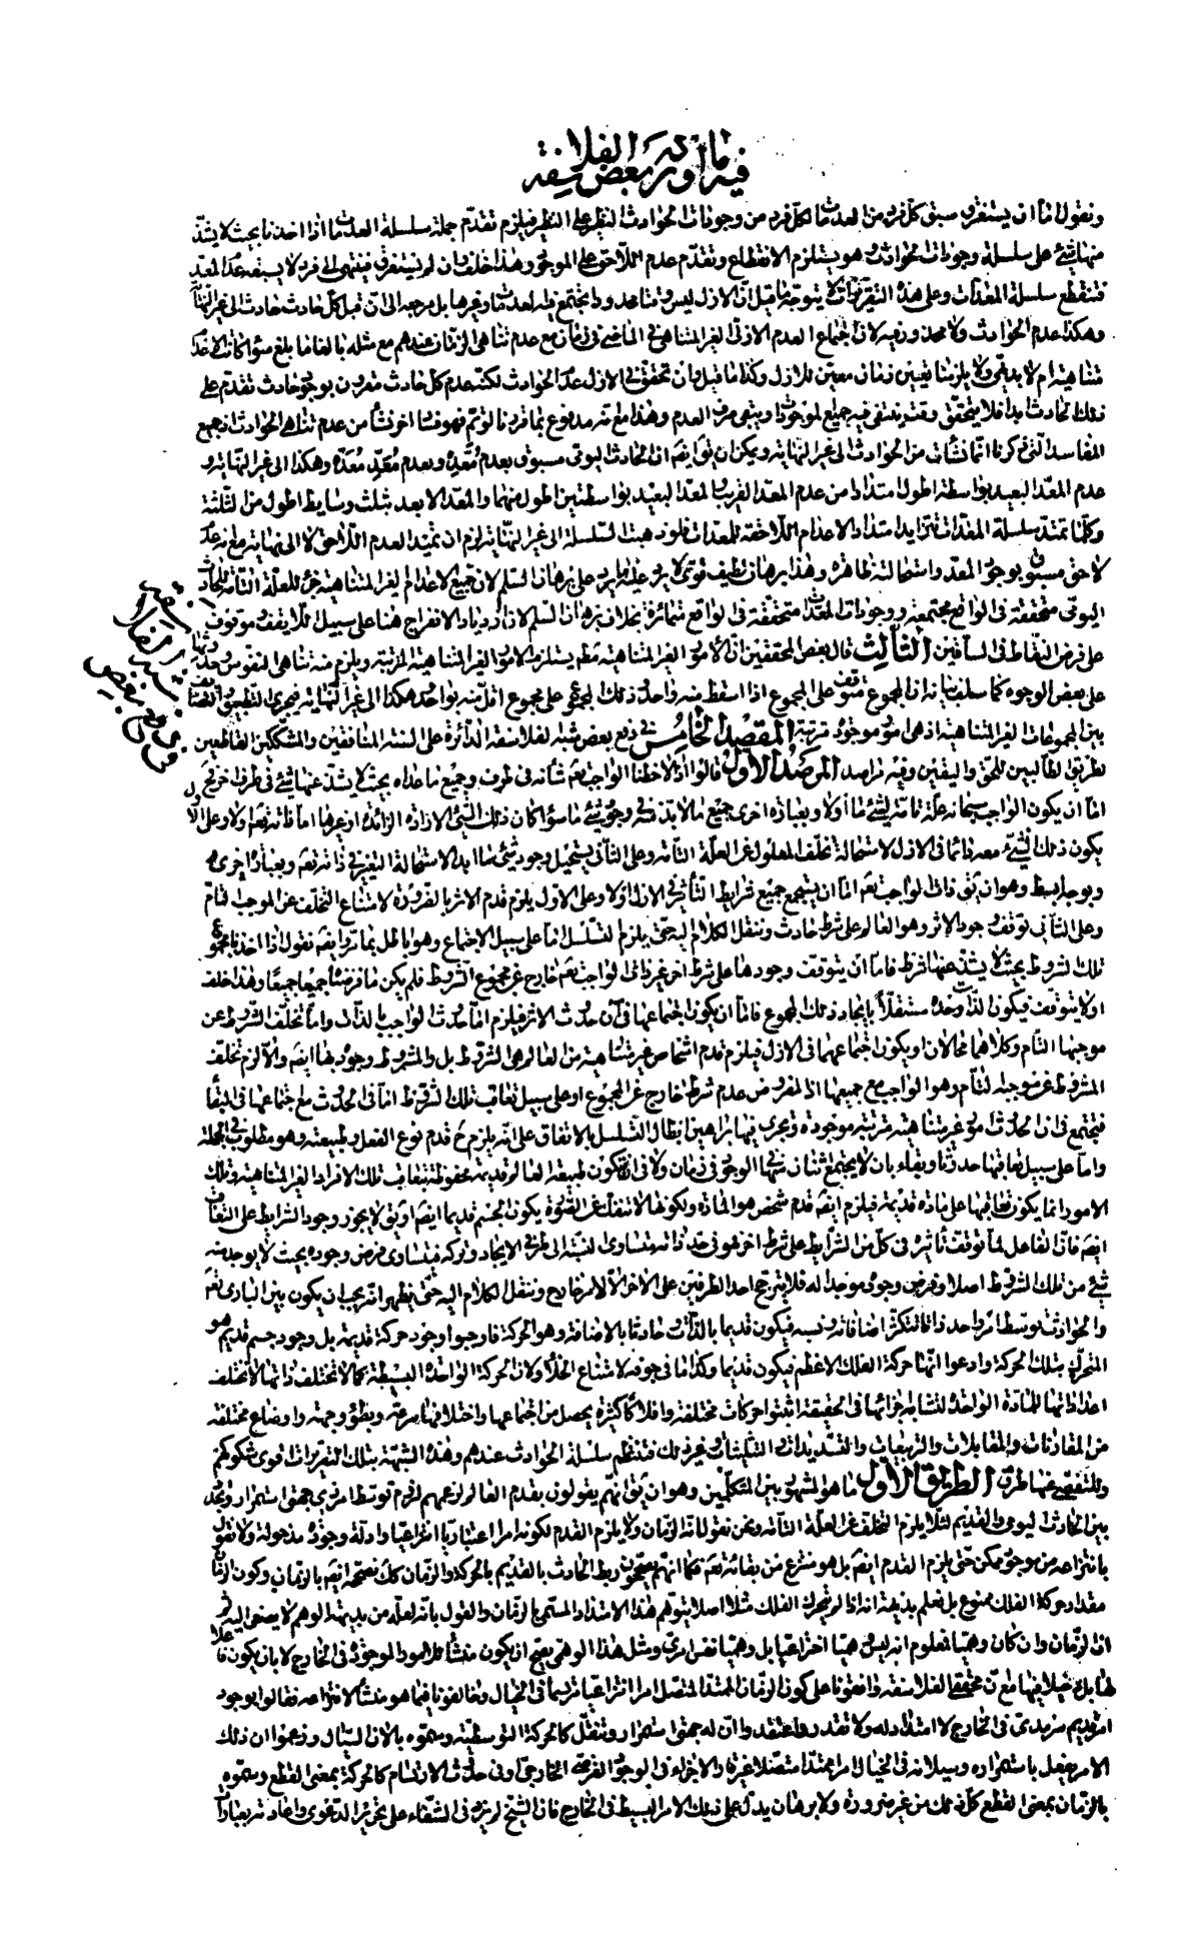 فيما أورده بعض الفلاسفة
ونقول اما ان يستغرق سبق كل فرد من العدمات لكل فرد من وجودات الحوادث النظير على النظير فيلزم تقدم جملة سلسلة العدمات اذا اخذنا بحيث لا يشذ
منها شئ على سلسلة وجودات الحوادث وهو يستلزم الانقطاع وتقدم عدم اللاحق على الموجود وهذا خلف وان لم يستغرق فينتهى الى فرد لا يسبقه عدم المعد
فتنقطع سلسلة المعدات وعلى هذه التقريرات لا يتوجه ما قيل ان الازل ليس وقتا محدودا يجتمع فيه العدمات وغيرها بل مرجعه الى ان قبل كل حادث حادث الى غير النهاية
وهكذا عدم الحوادث ولا محذور فيه لان اجتماع العدم الازلى الغير المتناهى فى الماضى فى زمان مع عدم تناهى الزمان عندهم مع مثله بالغا ما بلغ سواء كانت الاعداد
متناهية ام لا بديهى ولا يلزمنا تعيين زمان معين للازل وكذا ما قيل وان تحقق فى الازل عدم الحوادث لكنه عدم كل حادث مقرون بوجود حادث تقدم على
ذلك الحادث ابدا فلا يتحقق وقت ينتفى فيه جميع الموجودات ويبقى صرف العدم وهذا مع انه مدفوع بما قررنا لو تم فهو فساد اخر نشأ من عدم تناهى الحوادث اذ جميع
المفاسد التى ذكرنا انما نشأت من الحوادث الى غير النهاية ويمكن ان يق ايضا ان الحادث اليومى مسبوق بعدم معده وبعدم معد معده وهكذا الى غير النهاية و
عدم المعد البعيد بواسطة اطول امتدادا من عدم المعد القريب والمعد البعيد بواسطتين اطول منهما والمعد الابعد بثلث وسايط اطول من الثلثة
وكلما تمتد سلسلة المعدات تتزايد امتداد الاعدام اللاحقة للمعدات فلو ذهبت السلسلة الى غير النهاية لزم ان تمتد العدم اللاحق لا الى نهاية مع انه عدم
لاحق مسبوق بوجود المعد واستحالته ظاهرة وهذا برهان لطيف قوى لا يرد عليه ما يرد على برهان السلم لان جميع الاعدام الغير المتناهية جزء للعلة التامة للحادث
اليومى متحققة فى الواقع مجتمعة ووجودات المعدات متحققة فى الواقع متمايزة بخلاف برهان السلم لان ازدياد الانفراج هنا على سبيل اللايقف موقوف
على فرض النقاط فى الساقين الثالث قال بعض المحققين ان الامور الغير المتناهية مطلقا يستلزم الامور الغير المتناهية المرتبة ويلزم منه تناهى النفوس وحدوثها
على بعض الوجوه كما سلف بيانه ان المجموع متوقف على المجموع اذا اسقط منه واحد وذلك المجموع على مجموع اقل منه بواحد وهكذا الى غير النهاية فيجرى التطبيق
بين المجموعات الغير المتناهية اذ هى امور موجودة مترتبة المقصد الخامس فى دفع بعض شبه الفلاسفة الدائرة على السنة المنافقين والمشككين القاطعين
لطريق الطالبين للحق واليقين وفيه مراصد المرصد الاول قالوا اذا لاحظنا الواجب تعالى شأنه فى طرف وجميع ما عداه بحيث لا يشذ عنها شئ فى طرف اخر
اما ان يكون الواجب سبحانه علة تامة لشئ ما أو لا وبعبارة اخرى جميع ما لا بد منه فى وجود شئ ما سواء كان ذلك الشئ الارادة الزائدة او غيرها اما ذاته تعالى او لا وعلى الاول
يكون ذلك الشئ معه دائما فى الازل لاستحالة تخلف المعلول عن العلة التامة وعلى الثانى يستحيل وجود شئ ما ابدا لاستحالة التغير فى ذاته تعالى وبعبارة اخرى
وبوجه ابسط وهو ان يق ذات الواجب تعالى اما ان يستجمع جميع شرايط التأثير فى الازل او لا وعلى الاول يلزم قدم الاثر بالضرورة لامتناع التخلف عن الموجب التام
وعلى الثانى توقف وجود الاثر وهو العالم على شرط حادث وننقل الكلام اليه حتى يلزم التسلسل اما على سبيل الاجتماع وهو باطل بما مر وايضا نقول اذا اخذنا مجموع
تلك الشروط بحيث لا يشذ عنها شرط فاما ان يتوقف وجودها على شرط اخر غير ذات الواجب تعالى خارج عن مجموع الشروط فلم يكن ما فرضنا جميعا جميعا وهذا خلف
او لا يتوقف فيكون الذات وحده مستقلا بايجاد ذلك المجموع فاما ان يكون اجتماعها فى آن حدوث الاثر فيلزم اما حدوث الواجب بالذات واما تخلف الشروط عن
موجبها التام وكلاهما محالان او يكون اجتماعهما فى الازل فيلزم قدم اشخاص غير متناهية من العالم هى الشروط بل والمشروط وجودها ايضا والا لزم تخلف
المشروط عن موجبه التام وهو الواجب مع جميعها اذ المفروض عدم شرط خارج عن المجموع او على سبيل تعاقب تلك الشروط اما فى الحدوث مع اجتماعها فى البقاء
فيجتمع فى آن الحدوث امور غير متناهية مترتبة موجودة ويجرى فيها براهين ابطال التسلسل بالاتفاق على انه يلزم ح قدم نوع الفعل وطبيعته وهو مطلوب فى الجملة
واما على سبيل تعاقبها حدوثا وبقاء بان لا يجتمع اثنان منها فى الوجود فى زمان ولا فى آن فتكون طبيعة العالم قديمة محفوظة بتعاقب تلك الافراد الغير المتناهية وتلك
الامور انما يكون تعاقبها على مادة قديمة فيلزم ايضا قدم شخص هو المادة ولكونها لا تنفك عن الصورة يكون الجسم قديما ايضا او يق لا يجوز وجود الشرايط على التعاقب
ايضا فان الفاعل لما توقف تأثيره فى كل من الشرايط على شرط اخر فهو فى حد ذاته متساوى النسبة الى طرفى الايجاد وتركه فيتساوى فرض وجوده بحيث لا يوجد منه
شئ من تلك الشروط اصلا وفرض وجود موجدا له فلا يترجح احد الطرفين على الاخر الا لامر خارج وننقل الكلام اليه حتى يظهر انه يجب ان يكون بين البارى تعالى
والحوادث توسط امر واحد ذاتا متكثر اضافاته ونسبه فيكون قديما بالذات وحادثا بالاضافة وهو الحركة فاوجبوا وجود حركة قديمة بل وجود جسم قديم هو
المتحرك بتلك الحركة وادعوا انها حركة الفلك الاعظم فيكون قديما وكذا ما فى جوفه لامتناع الخلأ ولان الحركة الواحدة البسيطة كما لا تختلف ذاتها لا تختلف
اعداداتها للمادة الواحدة لتشابه اجزائها فى الحقيقة اثبتوا حركات مختلفة وافلاكا كثيرة يحصل من اجتماعها واختلافها سرعة وبطؤ وجهة واوضاع مختلفة
من المقارنات والمقابلات والتربيعات والتسديسات والتثليثات وغير ذلك فتنتظم سلسلة الحوادث عندهم وهذه الشبهة بتلك التقريرات اقوى شكوكهم
وللتفصى عنها طرق الطريق الاول ما هو المشهور بين المتكلمين وهو ان يق انهم يقولون بقدم العالم لزعمهم لزوم توسط امر ذى جهتى استمرار وتجدد
بين الحادث اليومى والقديم لئلا يلزم التخلف عن العلة التامة ونحن نقول انه الزمان ولا يلزم القدم لكونه امرا اعتباريا انتزاعيا وادلة وجوده مدخولة ولا نقول
بانتزاعه من موجود ممكن حتى يلزم القدم ايضا بل هو منتزع من بقائه تعالى فكما انهم يصححون ربط الحادث بالقديم بالحركة والزمان كك نصححه ايضا بالزمان وكون الزمان
مقدار حركة الفلك ممنوع بل نعلم بديهة انه اذا لم يتحرك الفلك مثلا اصلا يتوهم هذا الامتداد المسمى بالزمان والقول بانه لعله من بديهة الوهم لا يصغى اليه ثم
ان الزمان وان كان وهميا فمعلوم انه ليس وهميا اختراعيا بل وهميا نفس امرى ومثل هذا الوهمى يصح ان يكون منشأ للامور الموجودة فى الخارج لا بان يكون فاعلا
لها بل دخيلا فيها مع ان محققى الفلاسفة وافقونا على كون الزمان الممتد المتصل امرا انتزاعيا مرتسما فى الخيال وخالفونا فيما هو منشأ لانتزاعه فقالوا بوجود
امر قديم سرمدى فى الخارج لا امتداد له ولا تقدر ولا اعتقد وان له جهتى استمرار وتنقل كالحركة التوسطية وسموه بالان السيال وزعموا ان ذلك
الامر يفعل باستمراره وسيلانه فى الخيال امرا ممتدا متصلا غير قار الاجزاء فى الوجود الفرضى الخارجى وفى حدوث الارتسام كالحركة بمعنى القطع وسموه
بالزمان بمعنى القطع كل ذلك من غير ضرورة ولا برهان يدل على ذلك الامر البسيط فى الخارج فان الشيخ لم يزد فى الشفاء على تحرير الدعوى واعادته بعبارات